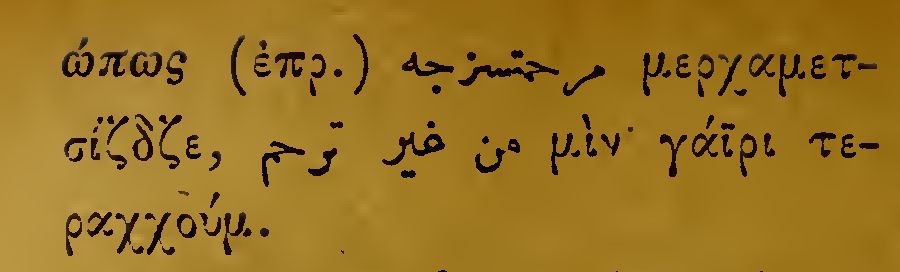 ώπως (ἐπρ.) مرحمتسزجه μερχαμετ-
σίζδζε, من غير ترحم μὶν γάϊρι τε-
ραχχούμ.